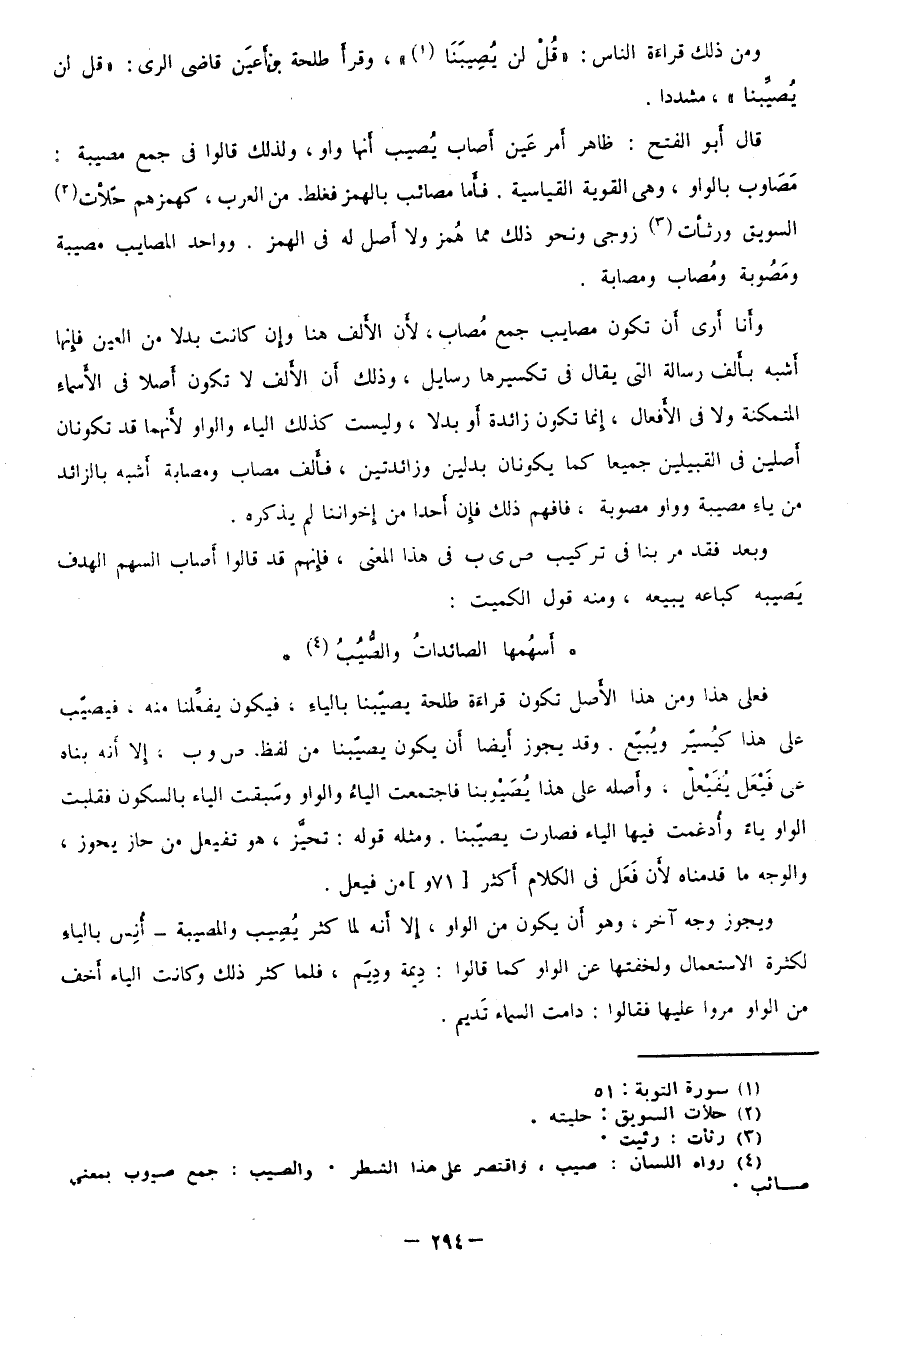 ومن ذلك قراءة الناس : «قُلْ لن يُصِيبَنَا (١)» ، وقرأ طلحة بن أَعيَن قاضى الرى : «قل لن
يُصيِّبنا » ، مشددا .
قال أَبو الفتح : ظاهر أَمر عَين أَصاب يُصيب أَنها واو ، ولذلك قالوا فى جمع مصيبة :
مَصَاوب بالواو ، وهى القوية القياسية . فأَما مصائب بالهمز فغلط. من العرب ، كهمزهم حَّلأْت(٢)
السويق ورثأت(٣) زوجى ونحو ذلك مما هُمز ولا أَصل له فى الهمز . وواحد المصايب مصيبة
ومَصُوبة ومُصاب ومصابة .
وأَنا أَرى أَن تكون مصايب جمع مُصاب ، لأَن الأَلف هنا وإِن كانت بدلا من العين فإِنها
أَشبه بأَلف رسالة التى يقال فى تكسيرها رسايل ، وذلك أَن الأَلف لا تكون أَصلا فى الأَسماء
المتمكنة ولا فى الأَفعال ، إِنما تكون زائدة أَو بدلا ، وليست كذلك الياء والواو لأَنهما قد تكونان
أَصلين فى القبيلين جميعا كما يكونان بدلين وزائدتين ، فأَلف مصاب ومصابة أَشبه بالزائد
من ياءِ مصيبة وواو مصوبة ، فافهم ذلك فإِن أَحدا من إِخواننا لم يذكره .
وبعد فقد مر بنا فى تركيب ص ى ب فى هذا المعنى ، فإِنهم قد قالوا أَصاب السهم الهدف
يَصيبه كباعه يبيعه ، ومنه قول الكميت :
* أَسهُمها الصائداتُ والصُّيُبُ (٤) *
فعلى هذا ومن هذا الأَصل تكون قراءة طلحة يصيّبنا بالياءِ ، فيكون يفعِّلنا منه ، فيصيّب
على هذا كيُسيّر ويُبيّع . وقد يجوز أَيضا أَن يكون يصيّبنا من لفظ. ص و ب ، إِلا أَنه بناه
على فَيْعَل يُفَيْعِل ، وأَصله على هذا يُصَيْوِبنا فاجتمعت الياءُ والواو وسَبقت الياء بالسكون فقلبت
الواو ياءً وأُدغمت فيها الياء فصارت يصيّبنا . ومثله قوله : تحيَّز ، هو تفيعل من حاز يحوز ،
والوجه ما قدمناه لأَن فَعّل فى الكلام أَكثر [ ٧١و ] من فيعل .
ويجوز وجه آخر ، وهو أَن يكون من الواو ، إِلا أَنه لما كثر يُصِيب والمصيبة ــ أُنِس بالياءِ
لكثرة الاستعمال ولخفتها عن الواو كما قالوا : دِيمة ودِيَم ، فلما كثر ذلك وكانت الياء أَخف
من الواو مروا عليها فقالوا : دامت السماء تَديم .
(١) سورة التوبة : ٥١
(٢) حلأت السويق : حليته .
(٣) رثأت : رثيت .
(٤) رواه اللسان : صيب ، واقتصر على هذا الشطر . والصيب : جمع صيوب بمعنى
صائب .
— ٢٩٤ —